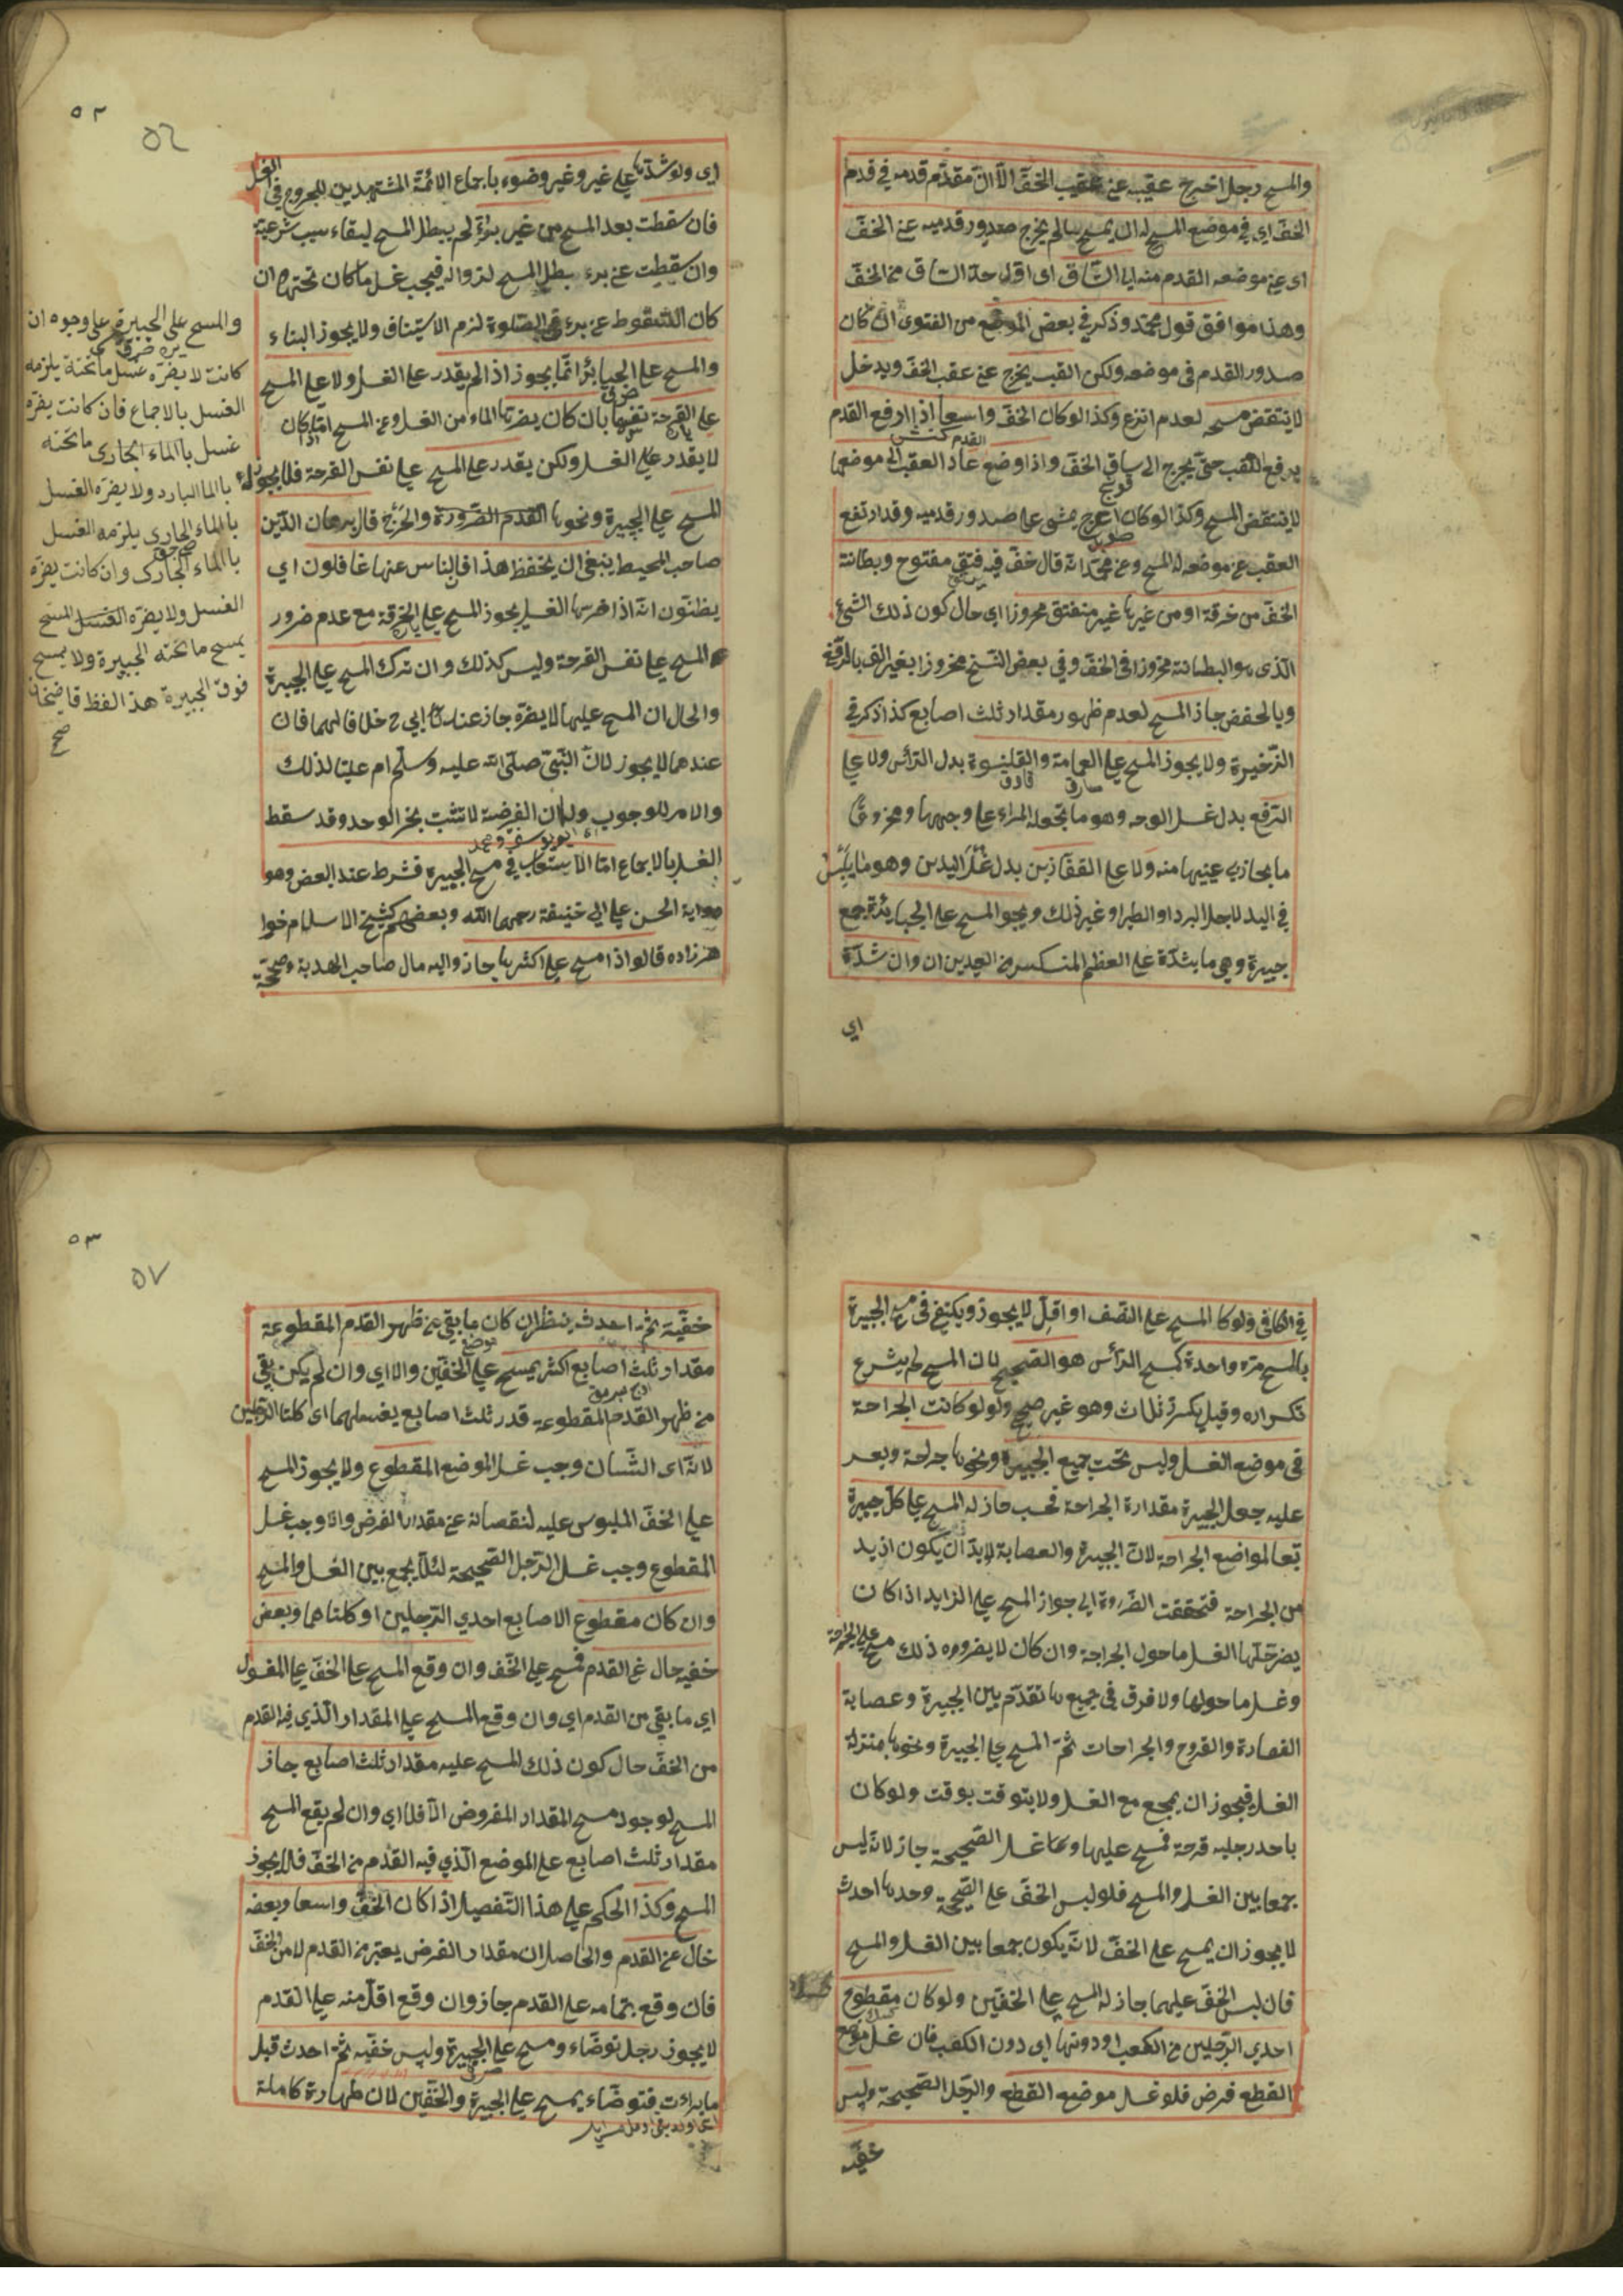 والمسح رجل اخرج عقبه عن عقب الخفّ الّا انّ مقدّم قدمه في قدم
الخفّ اي في موضع المسح له ان يمسح مالم يخرج صدور قدميه عن الخفّ
اى عن موضعه القدم منه الى السّاق اى اقل حدّ السّاق من الخفّ
وهذا موافق قول محمّد وذكر في بعض الموضع من الفتوى ان كان
صدور القدم في موضعه ولكن القب يخرج عن عقب الخفّ ويدخل
لا ينتقض مسحه لعدم انزع وكذا لو كان الخفّ واسعا اذا ارفع القدم
يرفع العقب حتّى يخرج الى ساق الخفّ واذا وضع عاد العقب الى موضعها
لا ينتقض المسح وكذا لو كان اعرج يمشى على صدور قدميه وقد ارتفع
العقب عن موضعه له المسح وعن محمّد انّه قال خفّ فيه فتق مفتوح وبطانته
الخفّ من خرقة او من غيرها غير منفتق محروزا اى حال كون ذلك الشئ
الّذى هو البطانته مخروزا فى الخفّ وفي بعض النّسخ مخروز بغير الف
وبالخفض جاز المسح لعدم ظهور مقدار ثلث اصابع كذا ذكر في
الذّخيرة ولا يجوز المسح على العمامة والقلنسوة بدل الرّأس ولا على
البرقع بدل غسل الوجه وهو ما تجعله المراء على وجهها
ما يحاذي عينيها منه ولا على القفّازين بدل غسل اليدين وهو ما يلبس
في اليد لاجل البرد او الطير او غير ذلك ويجو المسح على الجبائر جمع
جبيرة وهي ما يشدّ على العظم المنكسر من العيدين ان وان شدّة
اي
٥٢
٥٦
اى ولو شدّها على غير وغير وضوء باجماع الائمّة المشتهدين للجروح في الغسل
فان سقطت بعد المسح من غير برء لم يبطل المسح لبقاء سبب شرعيّته
وان سقطت عن برء بطل المسح لزواله فيجب غسل ما كان تحته وان
كان السّقوط عن برء في الصّلوة لزم الاستيناف ولا يجوز البناء
والمسح على الجبائر انّما يجوز اذا لم يقدر على الغسل ولا على المسح
على القرحة نفسها بان كان يضرّها الماء من الغسل وعن المسح امّا اذا كان
لا يقدر على الغسل ولكن يقدر على المسح على نفس القرحة فلا يجوز له
المسح على الجبيرة ونحوها لعدم الضّرورة والحرج قال برهان الدّين
صاحب المحيط ينبغى ان يحفظ هذا فالنّاس عنها غافلون اي
يظنّون انّه اذا ضرّها الغسل يجوز المسح على الخرقة مع عدم ضرور
المسح على نفس القرحة وليس كذلك وان ترك المسح على الجبيرة
والحال ان المسح عليها لا يضرّه جاز عند ابي ح خلافا لهما فان
عندهما لا يجوز لانّ النّبيّ صلّى الله عليه وسلّم ام عليّا لذلك
والامر للوجوب ولان الفرضية لا تثبت بخبر الوحد وقد سقط
ابو يوسف ومحمد
الغسل بالاجماع امّا الاستعاب في مسح الجبيرة فشرط عند البعض وهو
رواية الحسن على ابي حنيفة رحمهما الله وبعضهم كشيخ الاسلام خوا
هرزاده قالوا اذا مسح على اكثرها جاز واليه مال صاحب الهدية وصحّحه
والمسح على الجبيرة على وجوه ان
كانت لا يضرّه غسل ما تحته يلزمه
الغسل بالاجماع فان كانت يضرّه
غسل بالماء الجارى ما تحته
بالما البارد ولا يضرّه الغسل
بالماء الجاري يلزمه الغسل
بالماء الجارى وان كانت يضرّه
الغسل ولا يضرّه الغسل المسح
يمسح ما تحته الجبيرة ولا يمسح
فوق الجبيرة هذ الفظ قاضيخان
صح
في الكافى ولو كا المسح على النّصف او اقل لا يجوز ويكتفى في مسح الجبيرة
بالمسح مرّه واحدة كمسح الرّأس هو الصّحيح لان المسح لم يشرع
تكراره وقيل يكرّر ثلاث وهو غير صحيح ولو لو كانت الجراحة
في موضع الغسل وليس تحت جميع الجبيرة ونحوها جراحة وبعد
عليه جعل الجبيرة مقدارة الجراحة فحسب جاز له المسح على كلّ جبيرة
تبعا لمواضع الجراحة لانّ الجبيرة والعصابة لا بدّ ان يكون ازيد
من الجراحة فتحققت الضّرورة الى جواز المسح على الزايد اذا كان
يضرّ حلّها الغسل ما حول الجراحة وان كان لا يضر وره ذلك مسح على الجراحة
وغسل ما حولها ولا فرق في جميع ما تقدّم بين الجبيرة وعصابة
الفصادة والقروح والجراحات ثمّ المسح على الجبيرة ونحوها بمنزلة
الغسل فيجوز ان يجمع مع الغسل ولا يتوقت بوقت ولو كان
باحد رجليه قرحة فمسح عليها وغسل الصّحيحة جاز لانّه ليس
جمعا بين الغسل والمسح فلو لبس الخفّ على الصّحيحة وحدها احدث
لا يجوز ان يمسح على الخفّ لانّه يكون جمعا بين الغسل والمسح
فان لبس الخفّ عليهما جاز له المسح على الخفّين ولو كان مقطوع
احدى الرّجلين من الكعب او دونها اى دون الكعب فان غسل موضع
القطع فرض فلو غسل موضع القطع والرّجل الصّحيحة ولبس
خفّيه
٥٣
٥٧
خفّيه ثمّ احدث ينظر ان كان ما بقي من ظهر القدم المقطوعة
مقدار ثلث اصابع اكثر يمسح على الخفّين والا اى وان لم يكن بقي
من ظهر القدم المقطوعة قدر ثلث اصابع يغسلهما اى كلتا الرّجلين
لانّه اى الشّان وجب غسل الموضع المقطوع ولا يجوز المسح
على الخفّ الملبوس عليه لنقصانه عن مقدار الفرض واذا وجب غسل
المقطوع وجب غسل الرّجل الصّحيحة لئلّا يجمع بين الغسل والمسح
وان كان مقطوع الاصابع احدي الرّجلين او كلتاهما وبعض
خفيه خال عن القدم فمسح على الخفّ وان وقع المسح على الخفّ على المغسول
اي ما بقى من القدم اى وان وقع المسح على المقدار الّذي فيه القدم
من الخفّ حال كون ذلك المسح عليه مقدار ثلث اصابع جاز
المسح لوجود مسح المقدار المفروض الّا فلا اي وان لم يقع المسح
مقدار ثلث اصابع على الموضع الّذي فيه القدم من الخفّ فلا يجوز
المسح وكذا الحكم على هذا التّفصيل اذا كان الخفّ واسعا وبعضه
خال عن القدم والحاصل ان مقدار الفرض يعتبر من القدم لا من الخفّ
فان وقع بتمامه على القدم جاز وان وقع اقلّ منه على القدم
لا يجوز رجل توضّاء ومسح على الجبيرة ولبس خفّيه ثمّ احدث قبل
ما براءت فتوضّاء يمسح على الجبيرة والخفّين لان طهارة كاملة